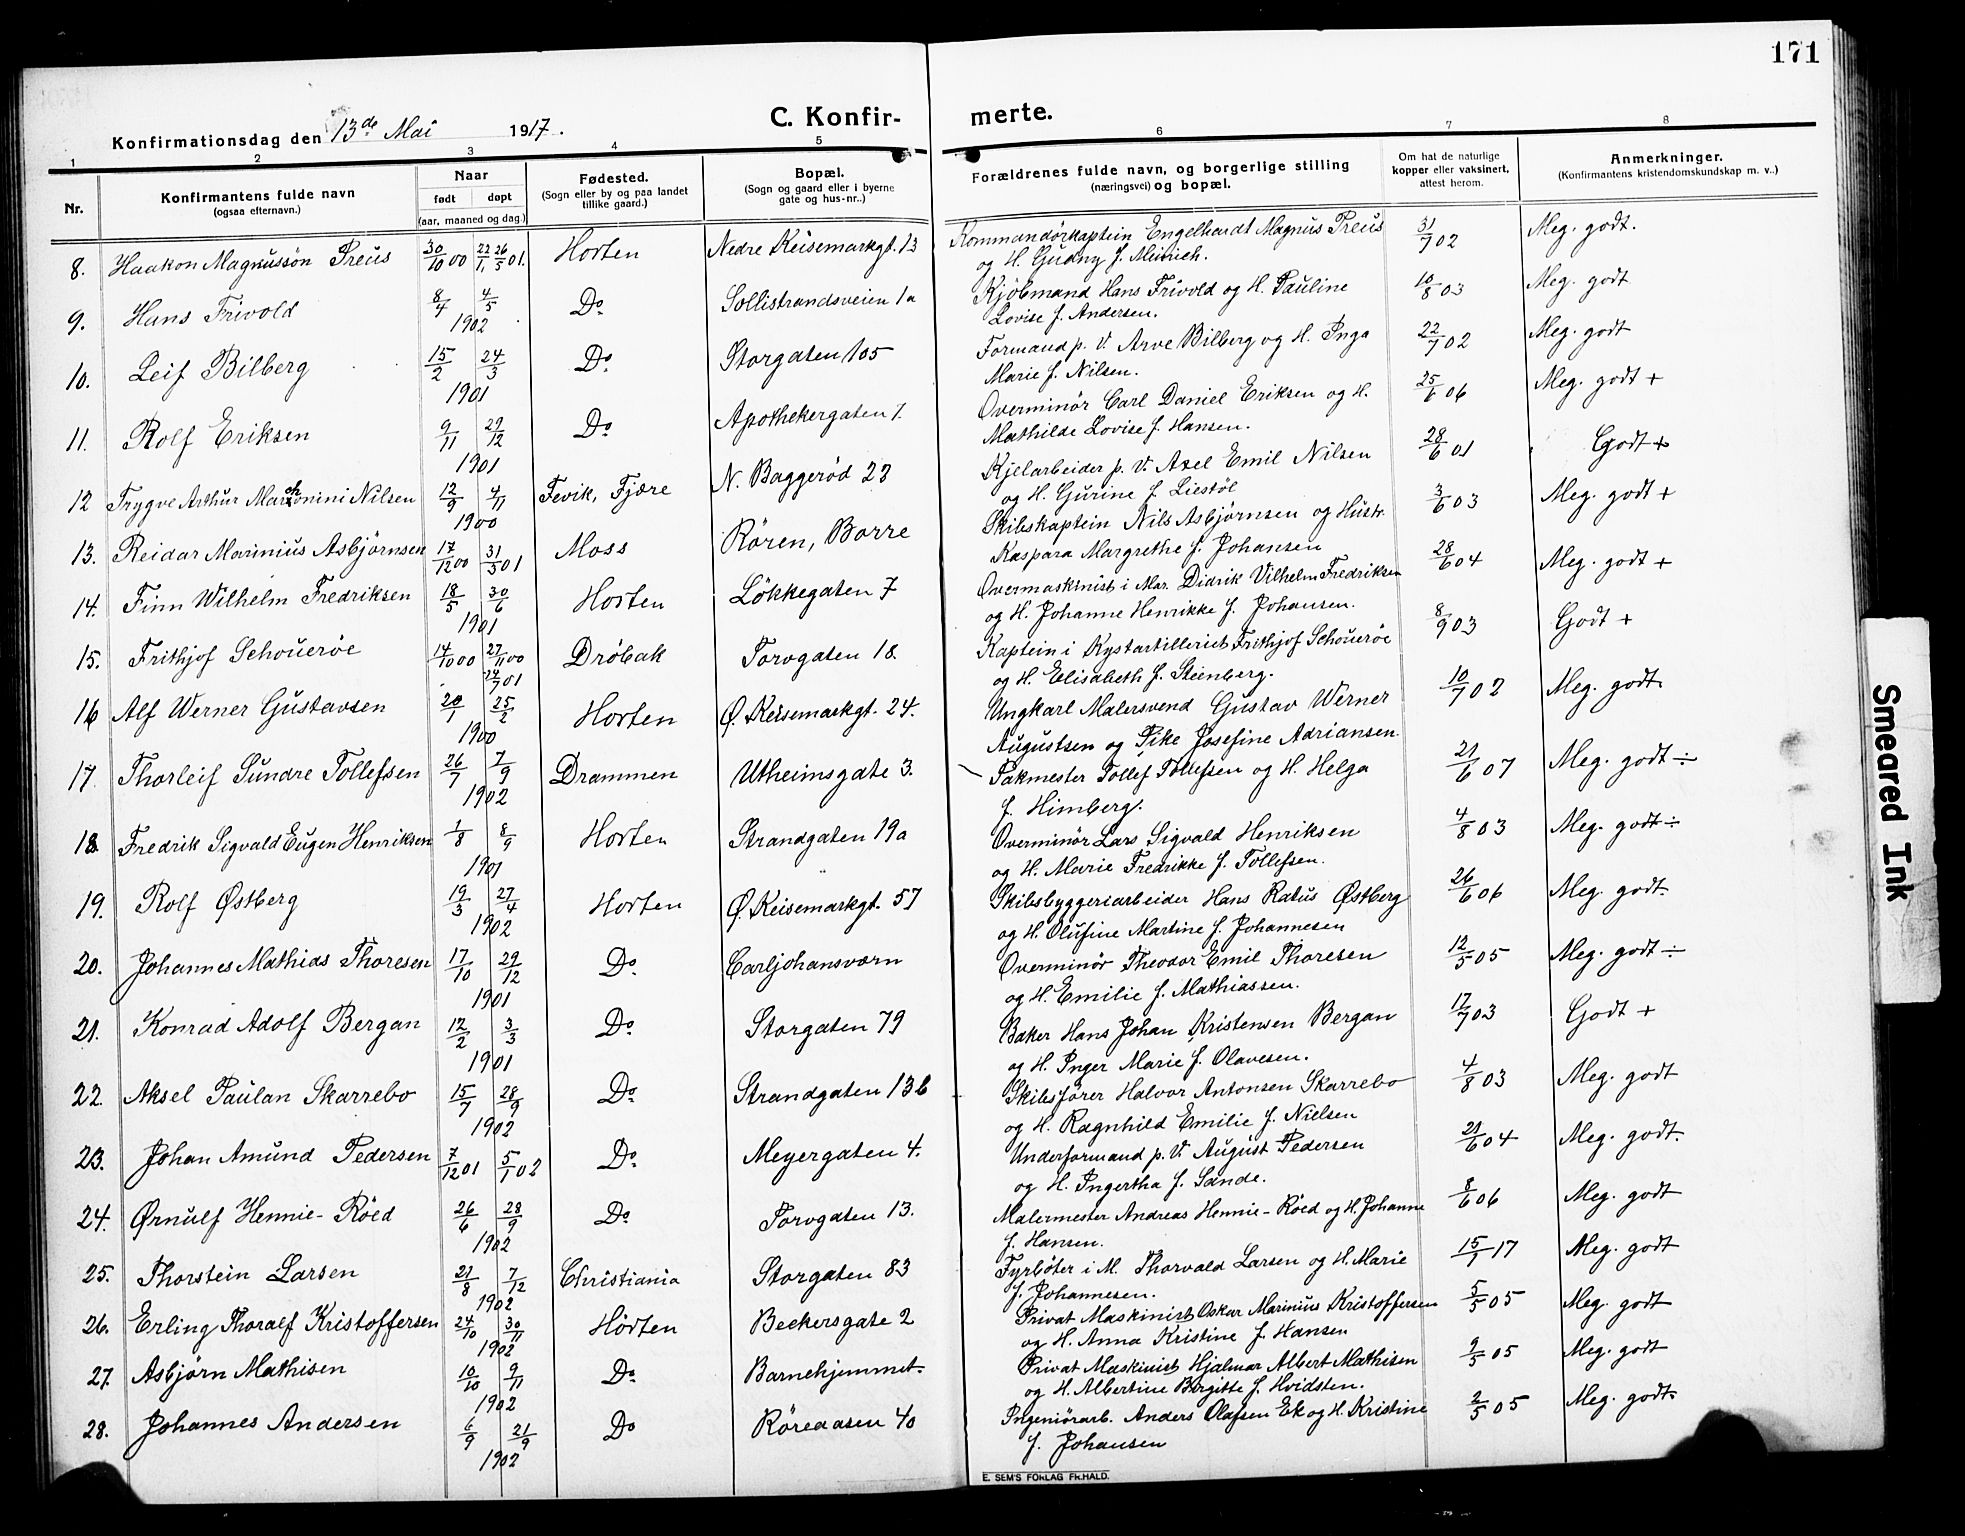 171
C. Konfir- merte.
Konfirmationsdag den 13de Mai 1917.
1 2 3 4 5 6 7 8
Nr.
Konfirmantens fulde navn
(ogsaa efternavn.)
Naar
født døpt
(aar, maaned og dag.)
Fødested.
(Sogn eller by og paa landet
tillike gaard.)
Bopæl.
(Sogn og gaard eller i byerne
gate og hus-nr..)
Forældrenes fulde navn, og borgerlige stilling
(næringsvei) og bopæl.
Om hat de naturlige
kopper eller vaksinert,
attest herom.
Anmerkninger.
(Konfirmantens kristendomskundskap m. v..)
8. Haakon Magnussön Preus 30/10 00 26/5 01. Horten Nedre Keisemarkgt. 13 Kommandörkaptein Engelhardt Magnus Preus 31/7 02 Meg. godt.
og H. Gudny f. Meinich.
9. Hans Frivold 8/4 4/5 Do Sollistrandsveien 1a Kjöbmand Hans Frivold og H. Pauline 10/8 03 Meg. godt
1902 Lovise f. Andersen.
10. Leif Bilberg 15/2 24/3 Do Storgaten 105 Formand p. V. Arve Bilberg og H. Inga 22/7 02 Meg. godt
1901 Marie f. Nilsen.
11. Rolf Eriksen 9/11 29/12 Do Apothekergaten 7. Overminör Carl Daniel Eriksen og H. 25/6 06 Meg. godt +
1901 Mathilde Lovise f. Hansen.
12 Trygve Arthur Marchonini Nilsen 12/9 4/11 Fevik, Fjære N. Baggeröd 23 Kjelarbeider p. V. Axel Emil Nilsen 28/6 01 Godt +
1900 og H. Gurine f. Liestöl
13. Reidar Marinius Asbjörnsen 17/12 00 31/3 01 Moss Rören, Borre Skibskaptein Nils Asbjörnsen og Hustr. 3/6 03 Meg. godt +
Kaspara Margrethe f. Johansen
14. Finn Wilhelm Fredriksen 18/5 30/6 Horten Lökkegaten 7 Overmaskinist i Mar. Didrik Vilhelm Fredriksen 28/6 04 Meg. godt +
1901 og H. Johanne Henrikke f. Johansen.
15. Frithjof Schoueröe 14/10 00 27/11 00 Dröbak Torvgaten 18. Kaptein i Kystartilleriet Frithjof Schoueröe 8/9 03 Godt +
14/7 01 og H. Elisabeth f. Steenberg.
16 Alf Werner Gustavsen 20/1 25/2 Horten Ø. Keisemarkgt. 24. Ungkarl Malersvend Gustav Werner 10/7 02 Meg. godt.
1900 Augustsen og Pike Josefine Adriansen
17 Thorleif Sundre Tollefsen 26/7 7/9 Drammen Utheimsgate 3. Pakmester Tollef Tollefsen og H. Helga 21/6 07 Meg. godt ÷
1902 f. Himberg.
18. Fredrik Sigvald Eugen Henriksen 1/8 8/9 Horten Strandgaten 19a Overminör Lars Sigvald Henriksen 4/8 03 Meg. godt ÷
1901 og H. Marie Fredrikke f. Tollefsen.
19. Rolf Østberg 19/3 27/4 Horten Ø. Keisemarkgt. 57 Skibsbyggeriarbeider Hans Ratus Østberg 26/6 06 Meg. godt.
1902 og H. Olufine Martine f. Johannesen
20. Johannes Mathias Thoresen 17/10 29/12 Do Carljohansværn Overminör Theodor Emil Thoresen 12/5 05 Meg. godt ÷
1901 og H. Emilie f. Mathiassen.
21. Konrad Adolf Bergan 12/2 3/3 Do Storgaten 79 Baker Hans Johan Kristensen Bergan 17/7 03 Godt +
1901 og H. Inger Marie f. Olavesen.
22. Aksel Paulan Skarrebo 15/7 28/9 Do Strandgaten 13b Skibsförer Halvor Antonsen Skarrebo 4/8 03 Meg. godt
1902 og H. Ragnhild Emilie f. Nielsen
23. Johan Amund Pedersen 7/12 01 5/1 02 Do Meyergaten 4. Underformand p. V. August Pedersen 21/6 04 Meg. godt.
og H. Ingertha f. Sande.
24. Ørnulf Hennie-Röed 26/6 28/9 Do Torvgaten 13. Malermester Andreas Hennie-Röed og H. Johanne 8/6 06 Meg. godt
1902 f. Hansen.
25. Thorstein Larsen 21/8 7/12 Christiania Storgaten 83 Fyrböter i M. Thorvald Larsen og H. Marie 15/1 17 Meg. godt
1902 f. Johannesen.
26. Erling Thoralf Kristoffersen 24/10 30/11 Horten Beckersgate 2 Privat Maskinist Oskar Marinius Kristoffersen 5/5 05 Meg. godt
1902 og H. Anna Kristine f. Hansen
27. Asbjörn Mathisen 10/10 9/11 Do Barnehjemmet. Privat Maskinist Hjalmar Albert Mathisen 9/5 05 Meg. godt
1902 og H. Albertine Birgitte f. Hvidsten.
28. Johannes Andersen 6/9 21/9 Do Röreaasen 40 Ingeniörarb. Anders Olafsen Ek og H. Kristine 2/5 05 Meg. godt.
1902 f. Johansen
E. SEM'S FORLAG FR.HALD.
Smeared Ink